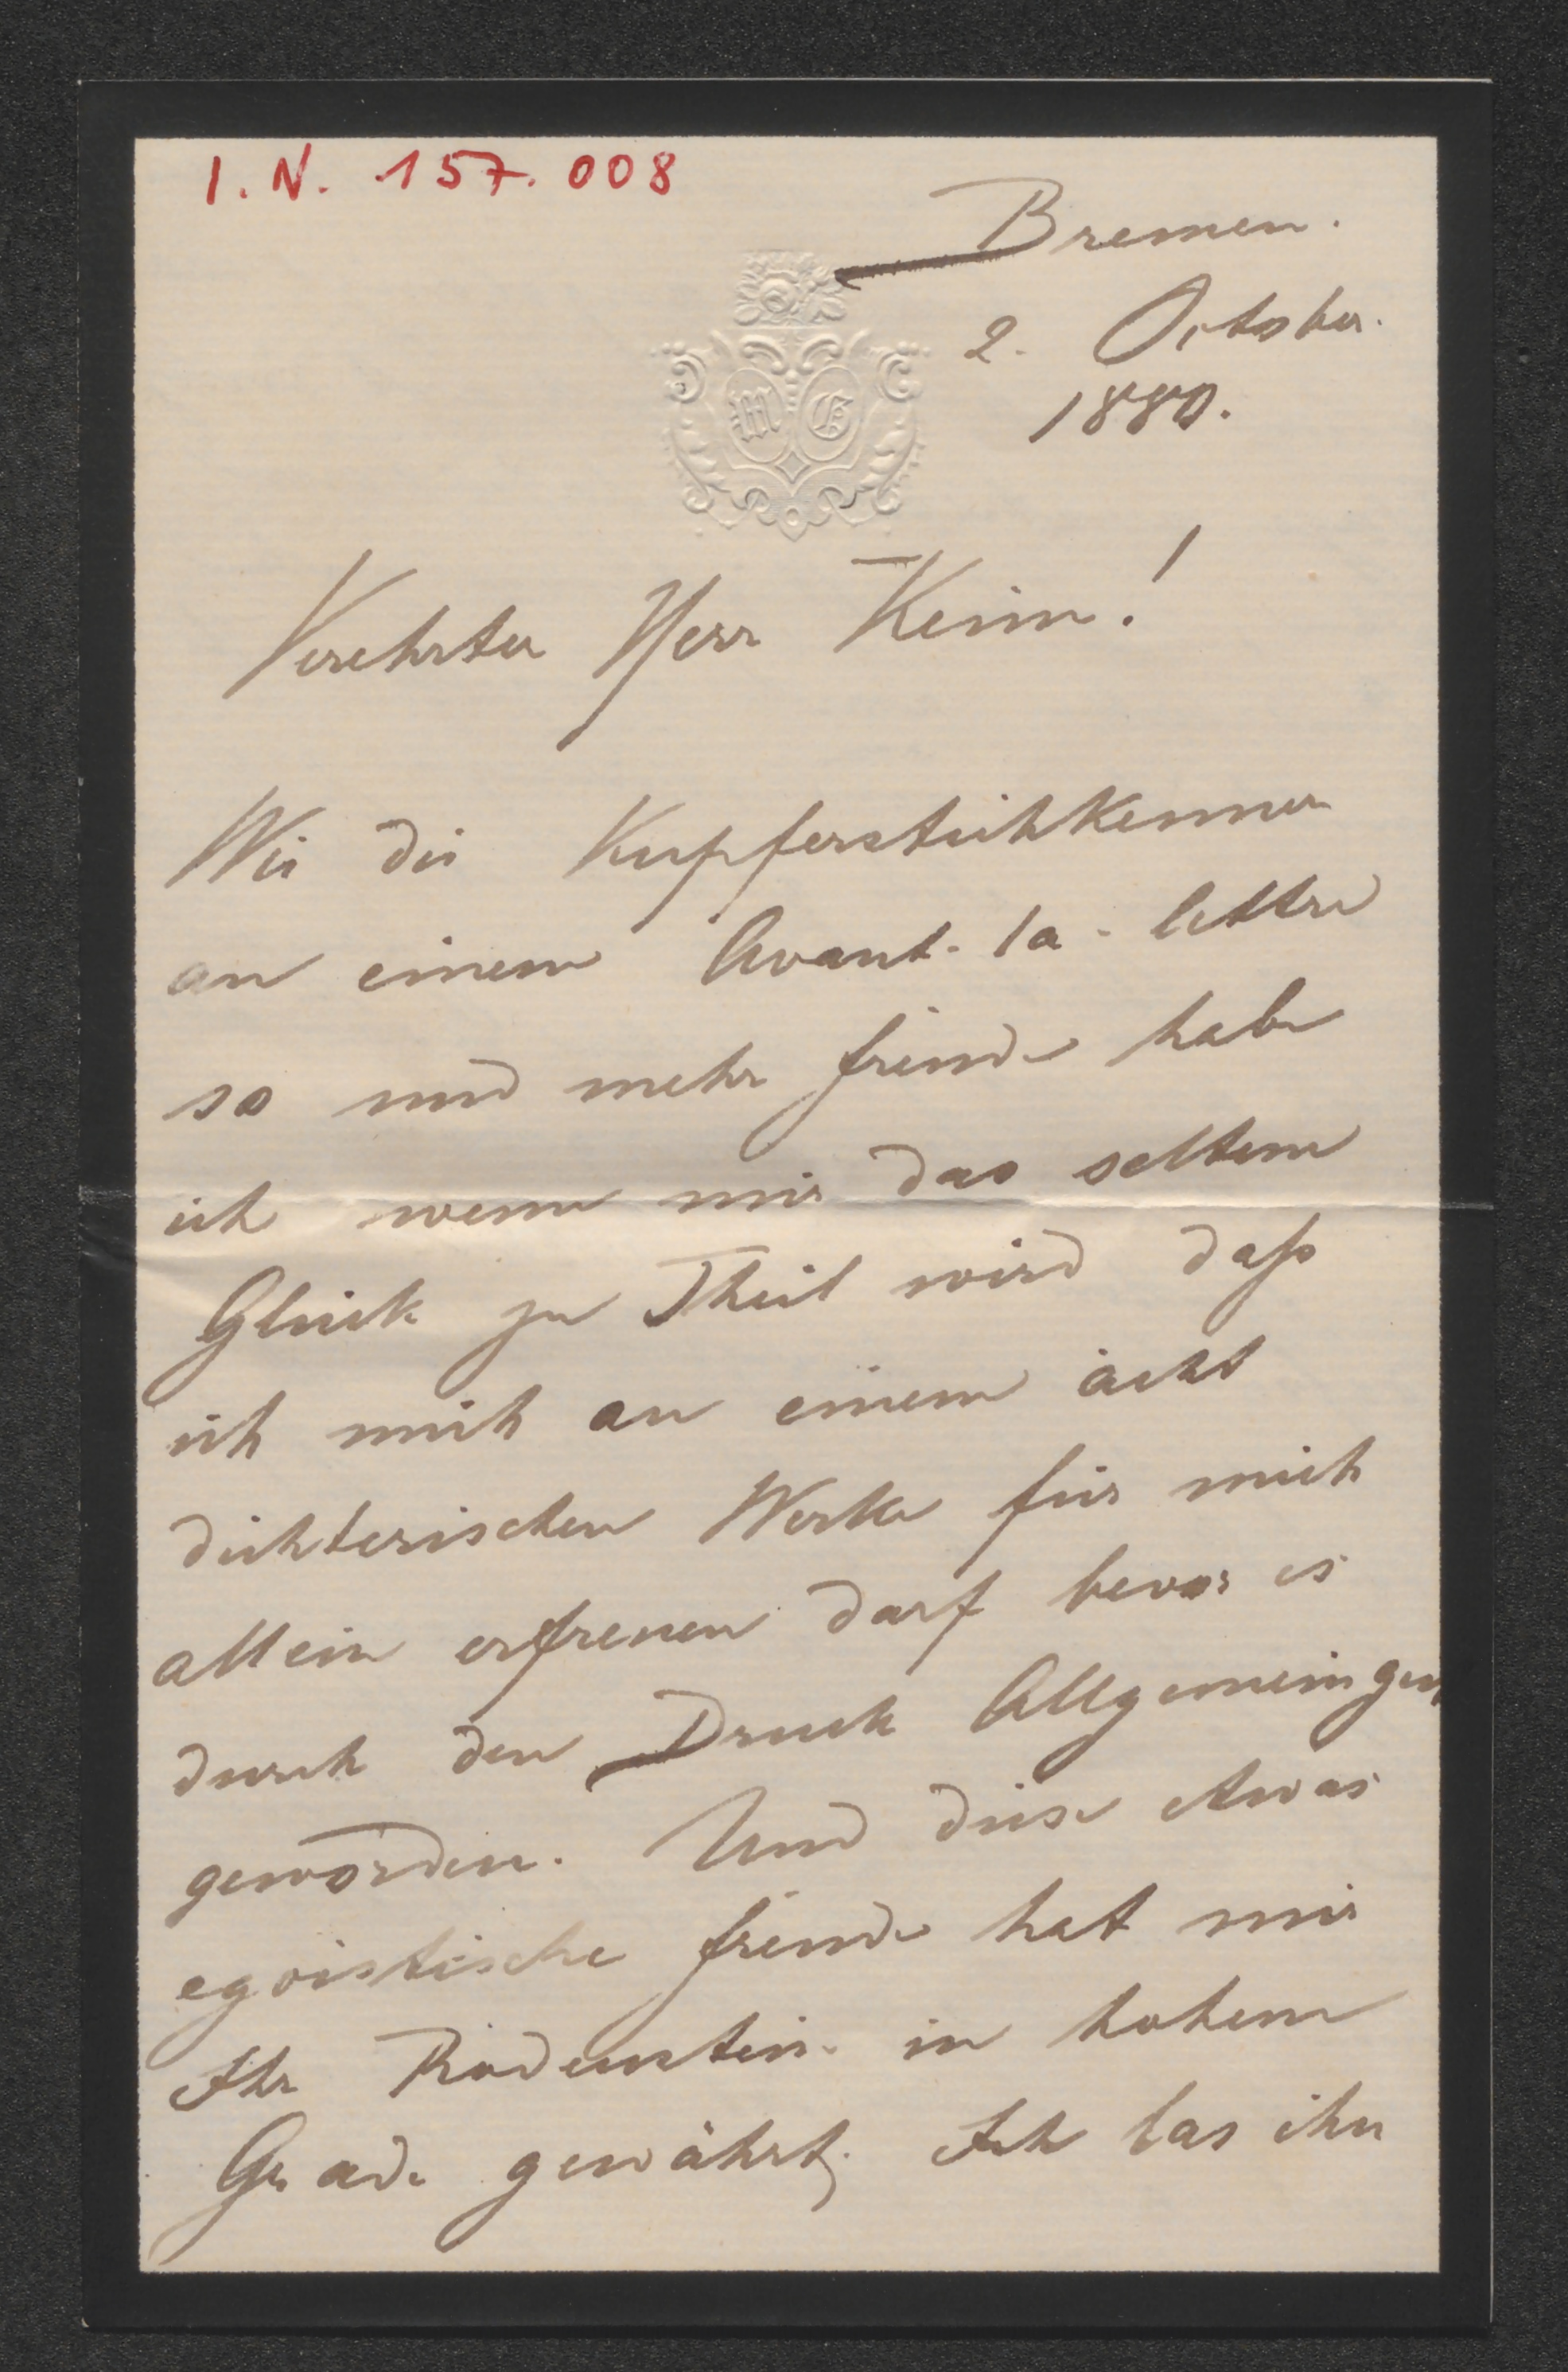 I. N. 157.008
Bremen.
2. October.
1880.
M E
Verehrter Herr Keim!
Wie die Kupferstichkenner
an einem Avant-la-lettre
so und mehr freude habe
ich wenn mir das seltene
Glück zu Theil wird daß
ich mich an einem ächt
dichterischen Werke für mich
allein erfreuen darf bevor es
durch den Druck Allgemeingut
geworden. Und diese etwas
egoistische freude hat mir
Ihr Rodenstein in hohem
Grade gewährt. Ich las ihn